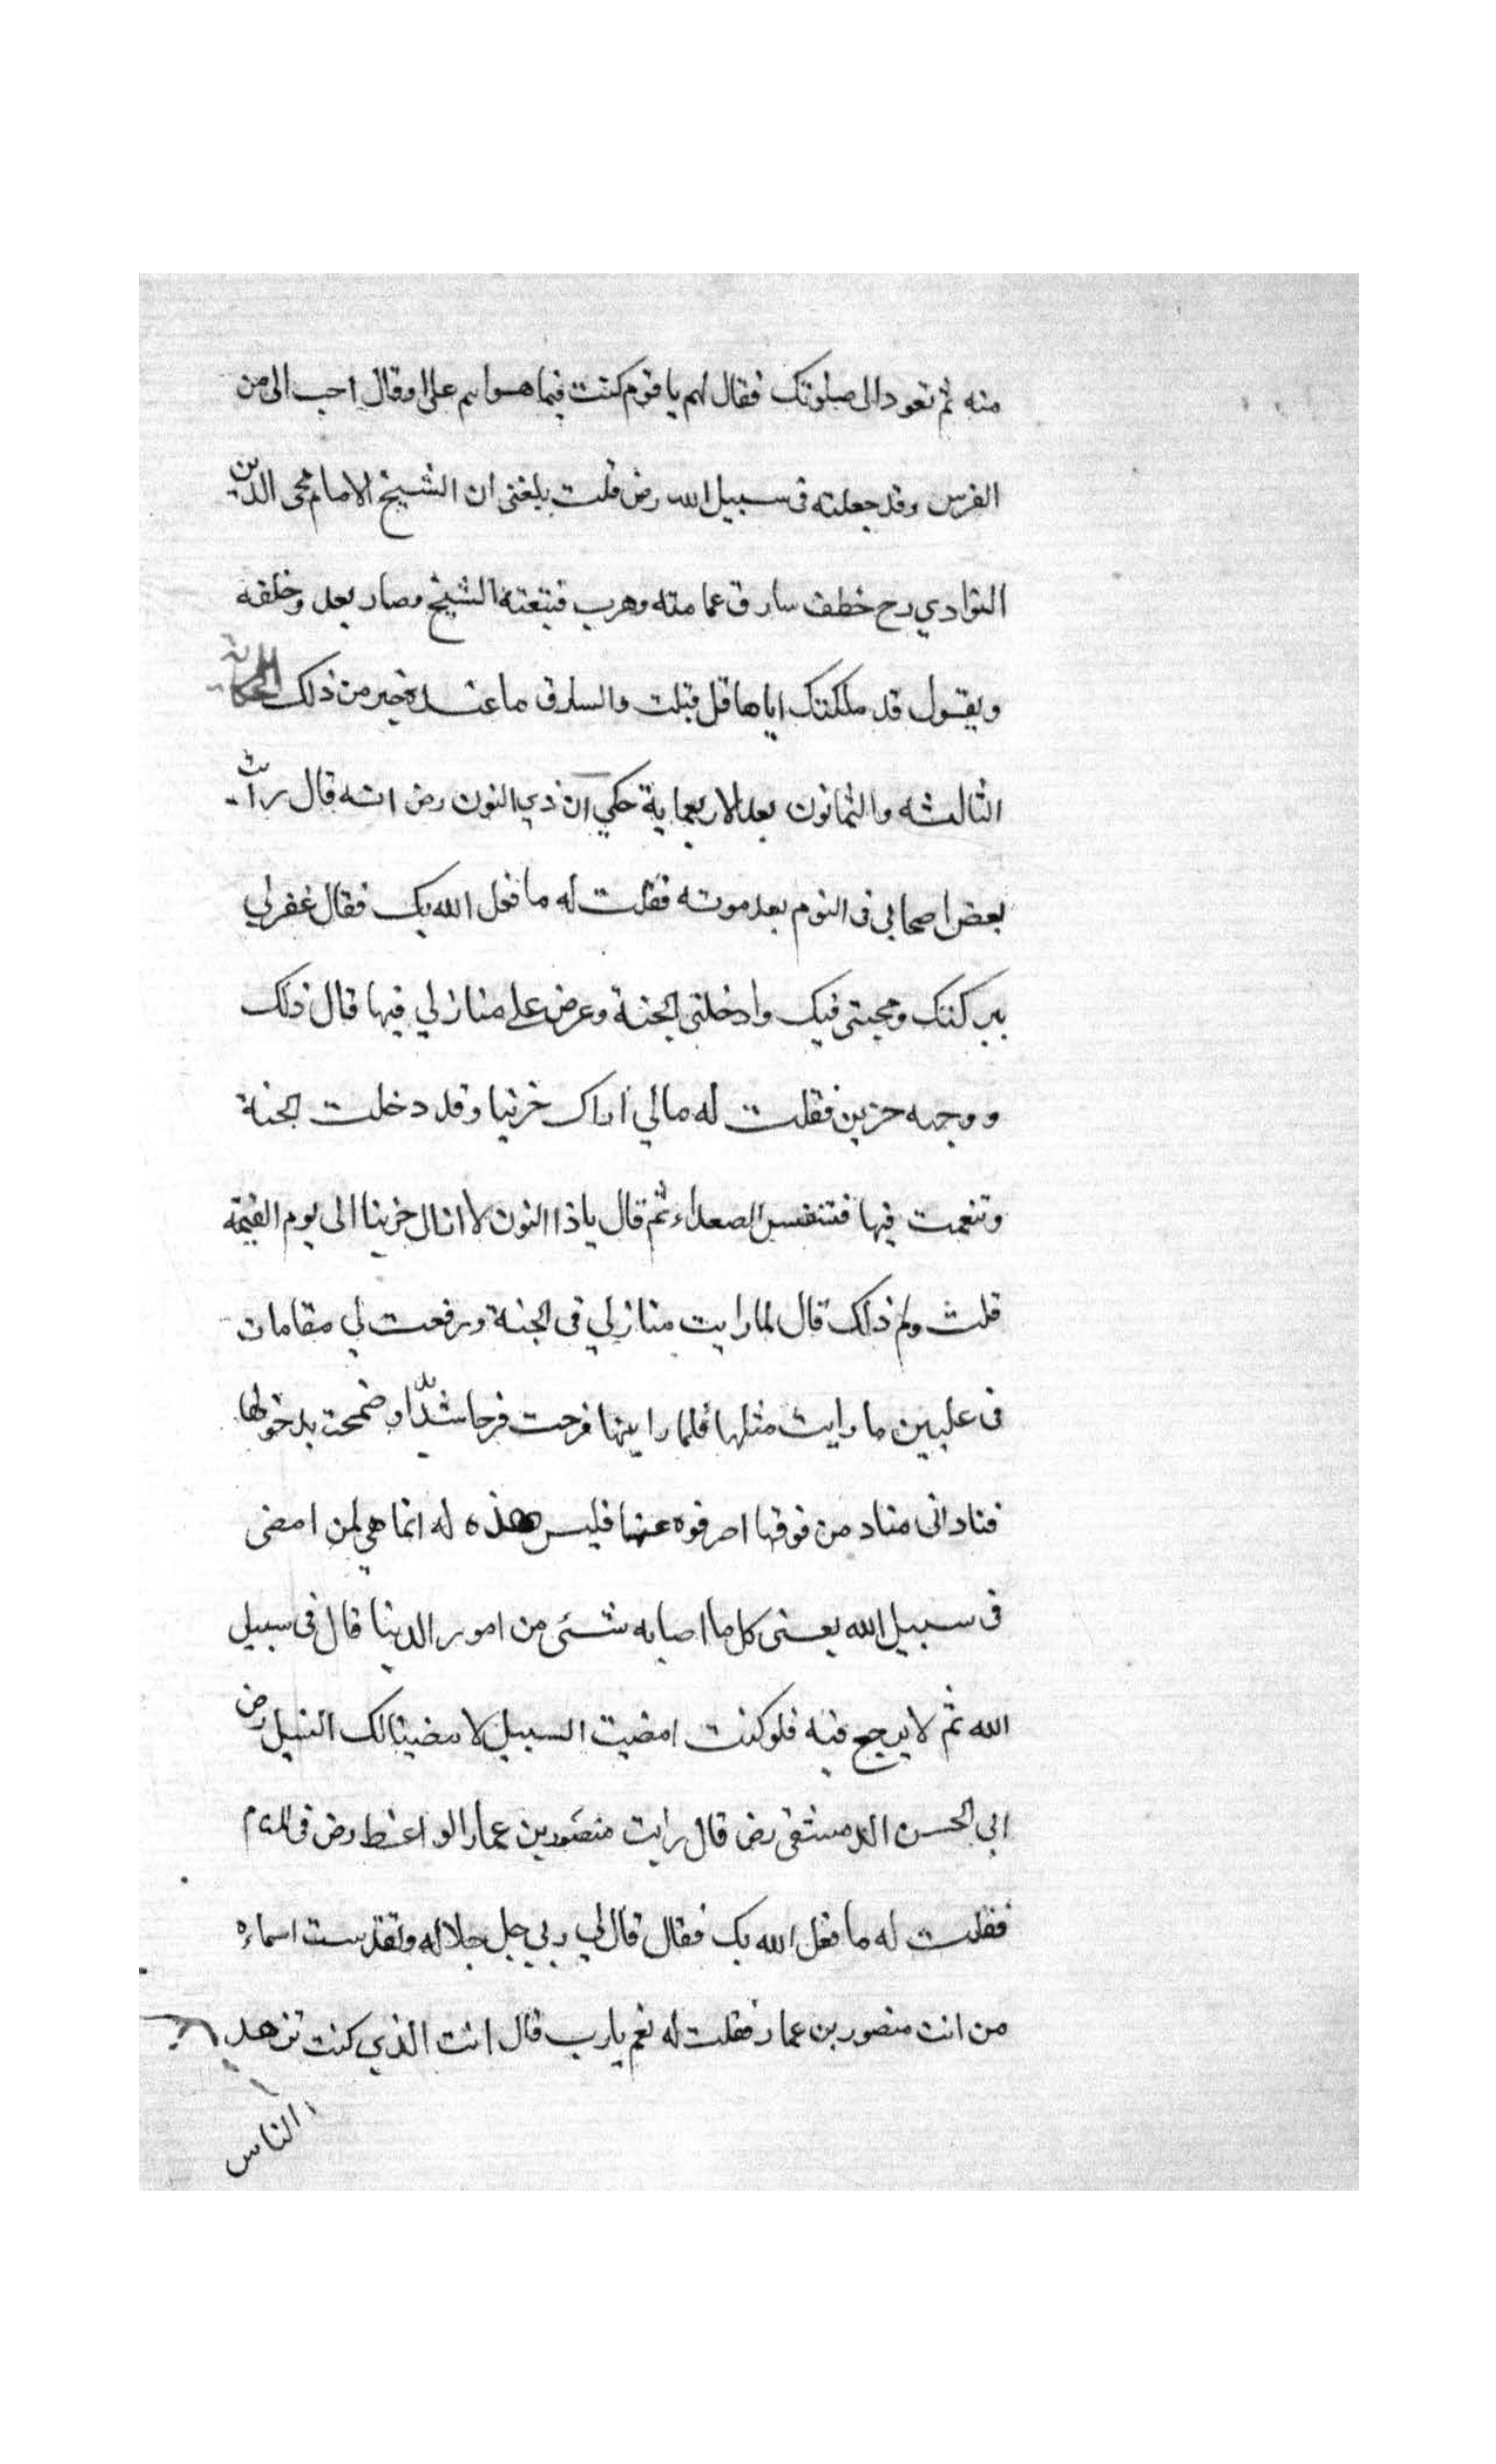 منه ثم تعود الى صلوتك فقال لهم يا قوم كنت فيما هو اهم علي او قال احب الى من
الفرس وقد جعلته فى سبيل الله رض قلت بلغنى ان الشيخ الامام محى الدين
النوادي رح خطف سارق عمامته وهرب فتبعته الشيخ وصار يعد وخلفه
ويقول قد ملكتك اياها قل قبلت والسارق ما عنده خبر من ذلك الحكاية
الثالثه والثمانون بعد الاربعماية حكي ان ذي النون رض انه قال رأيت
بعض اصحابي فى النوم بعد موته فقلت له ما فعل الله بك فقال غفر لي
ببركتك ومحبتى فيك وادخلنى الجنة وعرض على منازلي فيها قال ذلك
ووجهه حزين فقلت له مالي اراك حزينا وقد دخلت الجنة
وتنعمت فيها فتنفس الصعداء ثم قال ياذا النون لا ازال حزينا الى يوم القيمة
قلت ولم ذلك قال لما رايت منازلي فى الجنة ورفعت لي مقامات
فى عليين ما رايت مثلها فلما رايتها فرحت فرحا شديدا وضمحت بدخولها
فنادانى مناد من فوقها اصرفوه عنها فليس هذه له انما هي لمن امضى
فى سبيل الله يعنى كل ما اصابه شئ من امور الدينا قال فى سبيل
الله ثم لا يرجع فيه فلو كنت امضيت السبيل لامضينا لك السبيل رض
ابي الحسن الدمشقى رض قال رايت منصور بن عمار الواعظ رض فى المنام
فقلت له ما فعل الله بك فقال قال لي ربي جل جلاله وتقدست اسماءه
من انت منصور بن عمار فقلت له نعم يارب قال انت الذي كنت تزهد
الناس